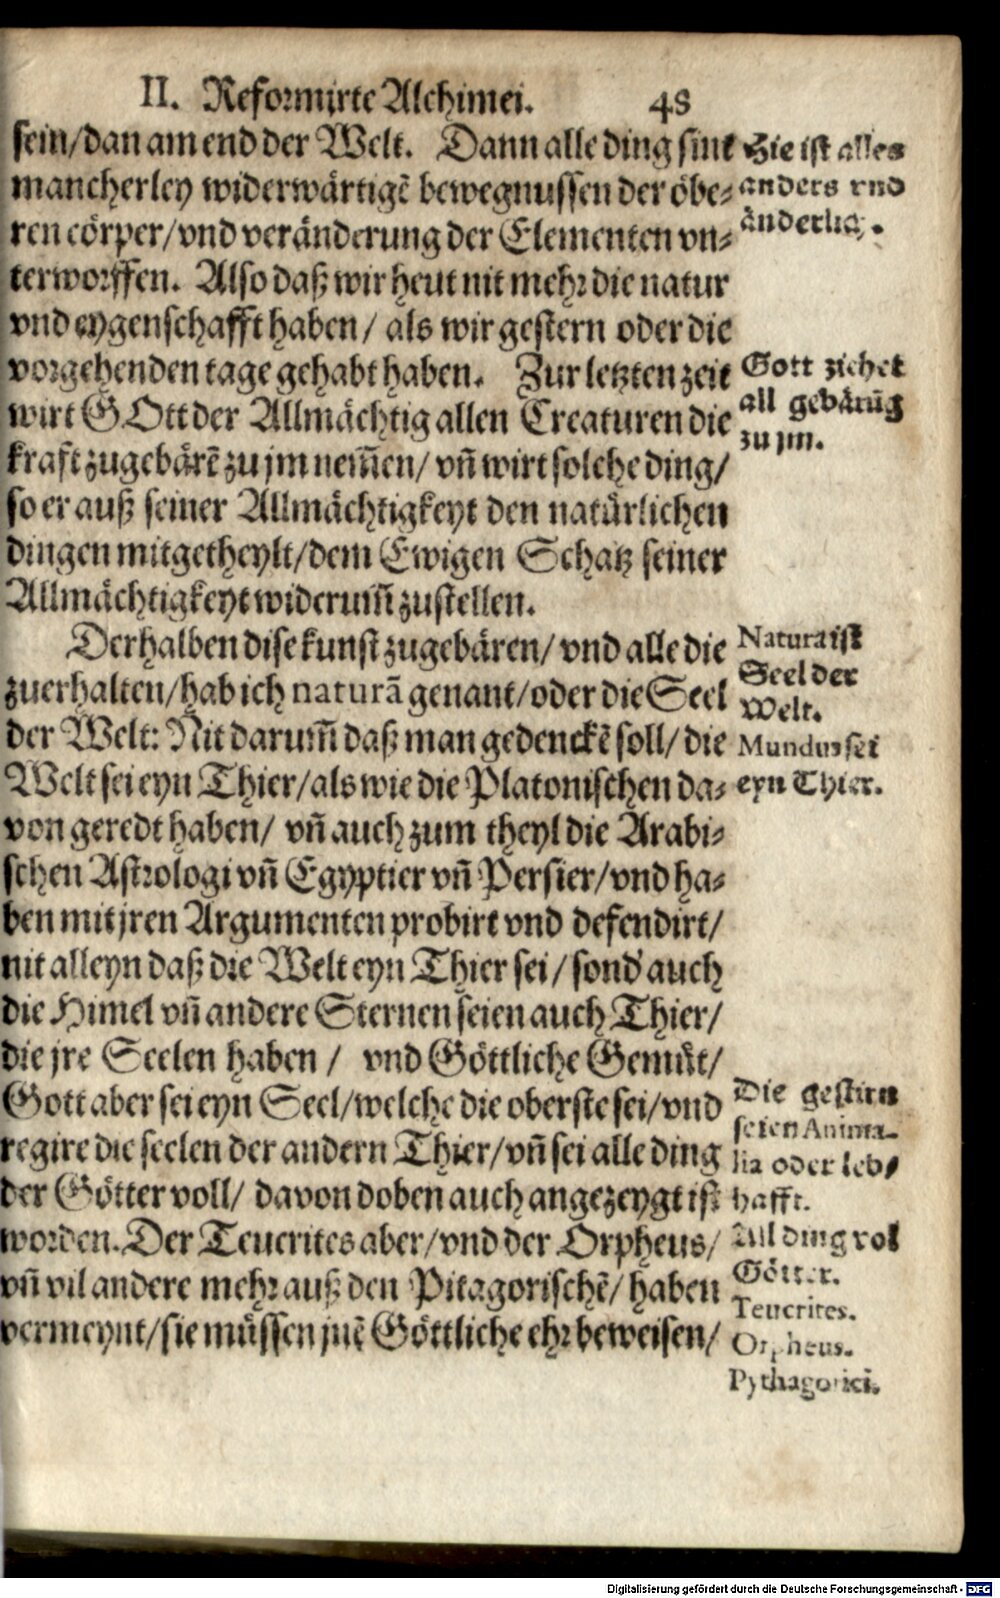 II. Reformirte Alchimei. 48
sein/dan am end der Welt. Dann alle ding sint
mancherley widerwärtigẽ bewegnussen der öbe-
ren cörper/vnd veränderung der Elementen vn-
terworffen. Also daß wir heut nit mehr die natur
vnd eygenschafft haben/ als wir gestern oder die
vorgehenden tage gehabt haben. Zur letzten zeit
wirt GOtt der Allmächtig allen Creaturen die
kraft zugebärẽ zu jm nem̃en/ vñ wirt solche ding/
so er auß seiner Allmächtigkeyt den natürlichen
dingen mitgetheylt/dem Ewigen Schatz seiner
Allmächtigkeyt widerum̃ zustellen.
Derhalben dise kunst zugebären/ vnd alle die
zuerhalten/hab ich naturã genant/oder die Seel
der Welt: Nit darum̃ daß man gedenckẽ soll/ die
Welt sei eyn Thier/als wie die Platonischen da-
von geredt haben/ vñ auch zum theyl die Arabi-
schen Astrologi vñ Egyptier vñ Persier/vnd ha-
ben mit jren Argumenten probirt vnd defendirt/
nit alleyn daß die Welt eyn Thier sei/ sond' auch
die Himel vñ andere Sternen seien auch Thier/
die jre Seelen haben/ vnd Göttliche Gemüt/
Gott aber sei eyn Seel/welche die oberste sei/vnd
regire die seelen der andern Thier/vñ sei alle ding
der Götter voll/ davon doben auch angezeygt ist
worden. Der Teucrites aber/vnd der Orpheus/
vñ vil andere mehr auß den Pitagorischẽ/ haben
vermeynt/sie müssen jnẽ Göttliche ehr beweisen/
Hie ist alles
anders vnd
änderlich.
Gott ziehet
all gebärũg
zu jm.
Natura ist
Seel der
Welt.
Mundus sei
eyn Thier.
Die gestirn
seien Anima-
lia oder leb-
hafft.
All ding vol
Götter.
Teucrites.
Orpheus.
Pythagorici.
Digitalisierung gefördert durch die Deutsche Forschungsgemeinschaft - DFG